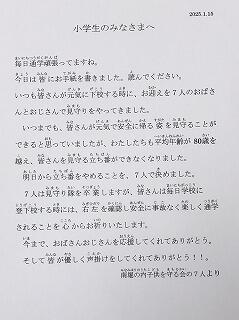 2025.1.15
小学生のみなさまへ
毎日通学頑張ってますね。
今日は皆さんにお手紙を書きました。読んでください。
いつも皆さんが元気に下校する時に、お迎えを7人のおばさ
んとおじさんで見守りをやってきました。
いつまでも、皆さんが元気で安全に帰る姿を見守ることが
できると思っていましたが、わたしたちも平均年齢が80歳を
越え、皆さんを見守る立ち番ができなくなりました。
明日から立ち番をやめることを、7人で決めました。
7人は見守り隊を卒業しますが、皆さんは毎日学校に
登下校する時には、右左を確認し安全に事故なく楽しく通学
されることを心からお祈りいたします。
今まで、おばさんおじさんを応援してくれてありがとう。
そして皆が優しく声掛けをしてくれてありがとう!!。
の内子供を守る会の7人より